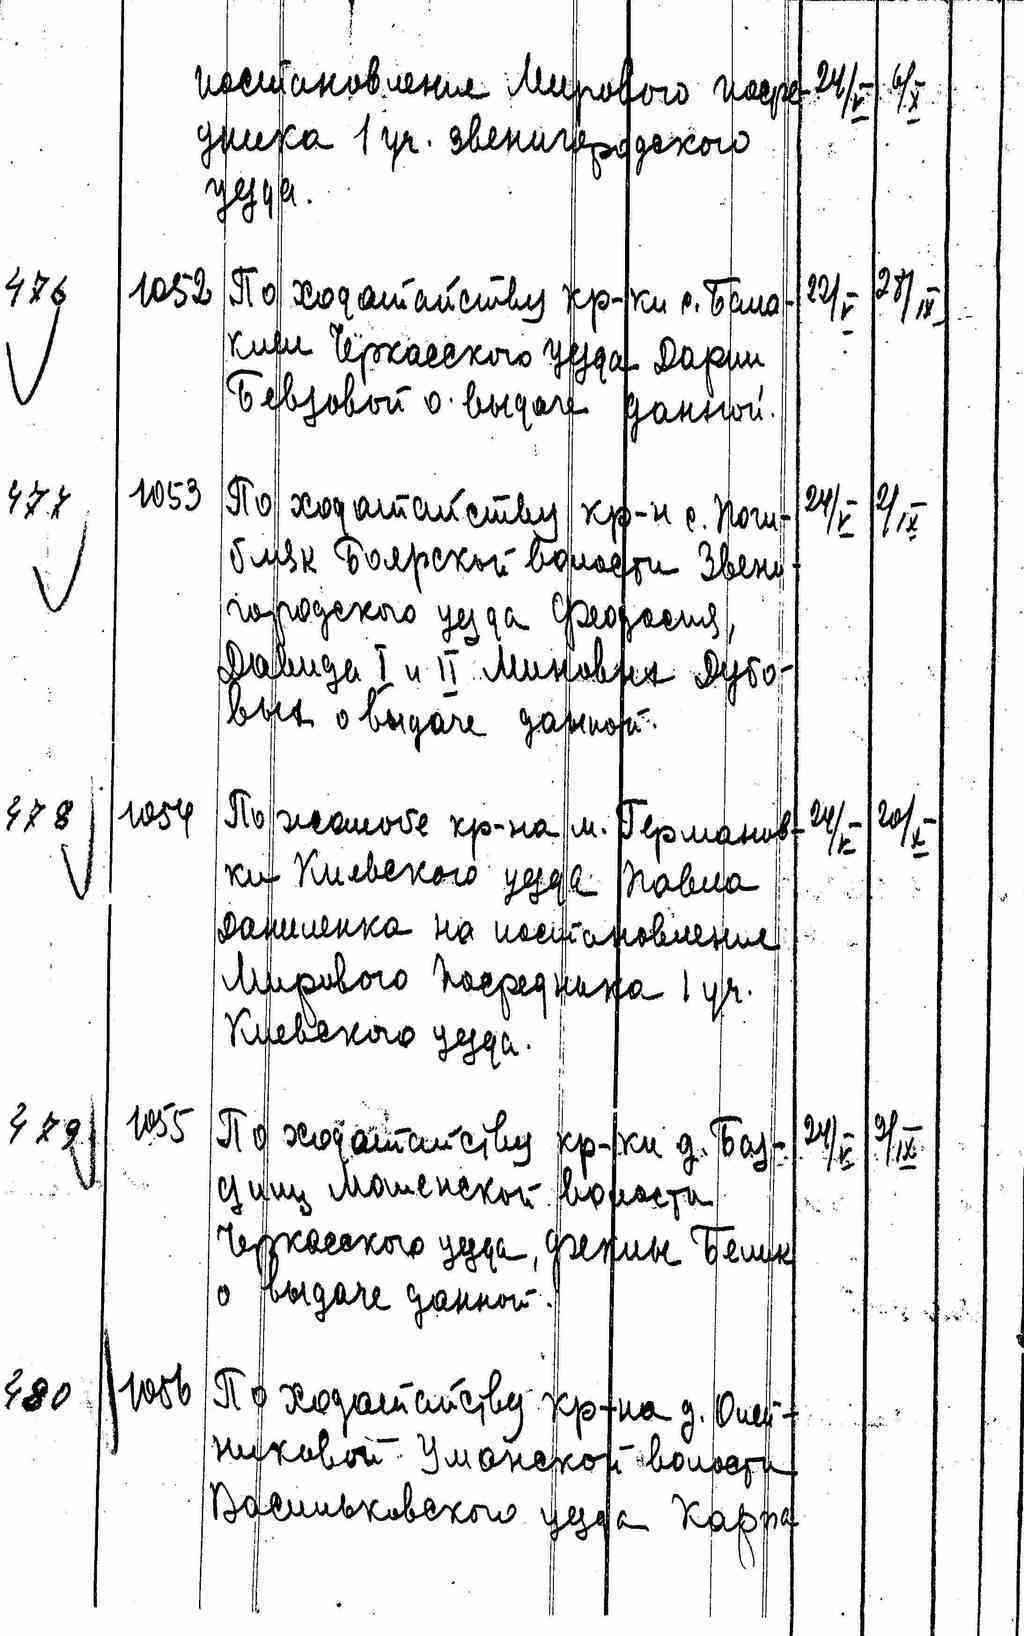 постановления Мирового посре- 24/V 6/X
дника 1 уч. Звенигородского
уезда.
476 1052 По ходатайству кр-ки с. Бала- 22/V 28/IX
клеи Черкасского уезда Дарии
Бевзовой о выдаче данной.
477 1053 По ходатайству кр-н с. Поги- 24/V 2/IX
бляк Боярской волости Звени-
городского уезда Феодосия,
Давида I и II Миновых Дубо-
вых о выдаче данной.
478 1054 По жалобе кр-на м. Германов- 24/V 20/X
ки Киевского уезда Павла
Даниленка на постановление
Мирового Посредника 1 уч.
Киевского уезда.
479 1055 По ходатайству кр-ки д. Баз- 24/V 9/IX
Мошенской волости
Черкасского уезда, Белик
о выдаче данной.
480 1056 По ходатайству кр-на д. Олей-
никовой Уманской волости
Васильковского уезда Карпа